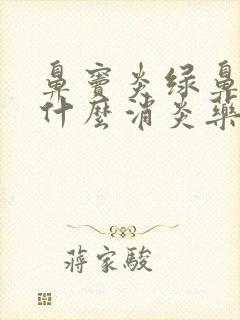 鼻窦炎绿鼻
什麼消炎藥
蒋家駿